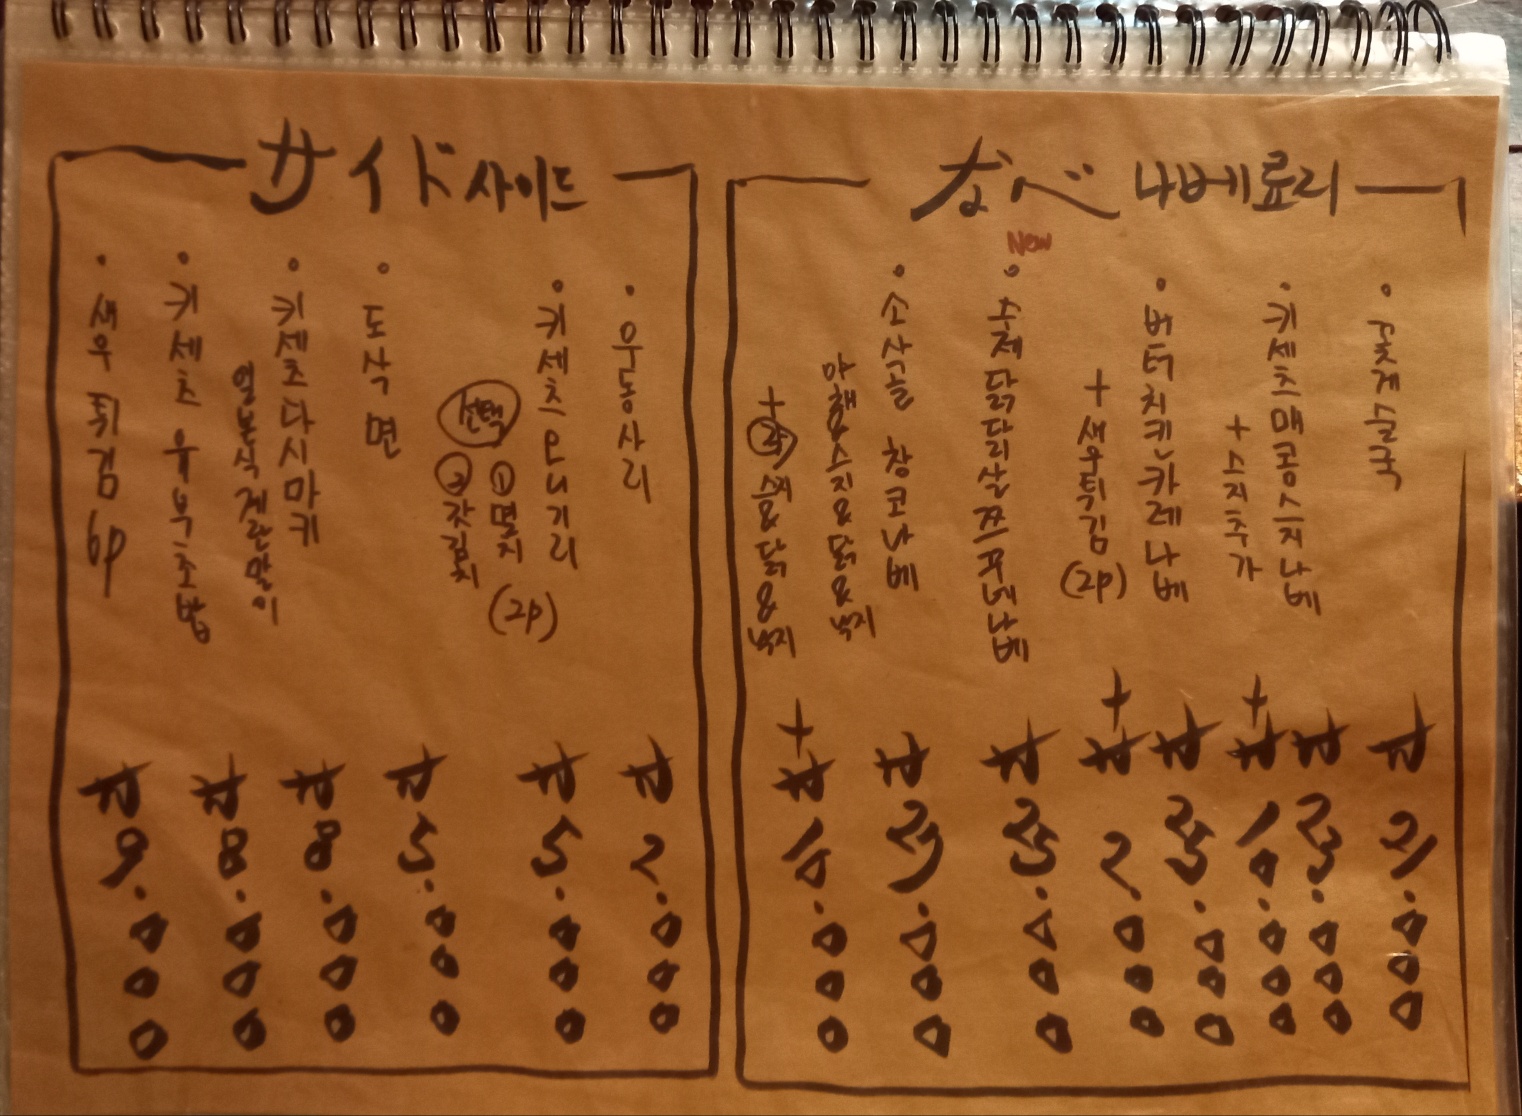 なべ 나베료리
• 꽃게술국 ₩21.000
• 키세츠매콤스지나베 ₩23.000
+스지추가 +₩10.000
• 버터치킨카레나베 ₩25.000
+새우튀김(2p) +₩2.000
New
• 수제닭다리살쯔꾸네나베 ₩25.000
• 소사골 창코나베 ₩27.000
야채&스지&닭&낙지
+ 스지&닭&낙지 +₩10.000
サイド 사이드
• 우동사리 ₩2.000
• 키세츠오니기리 ₩5.000
선택 ①명치 (2p)
②갓김치
• 도삭면 ₩5.000
• 키세츠다시마키 ₩8.000
일본식계란말이
• 키세츠 유부초밥 ₩8.000
• 새우튀김 6p ₩9.000